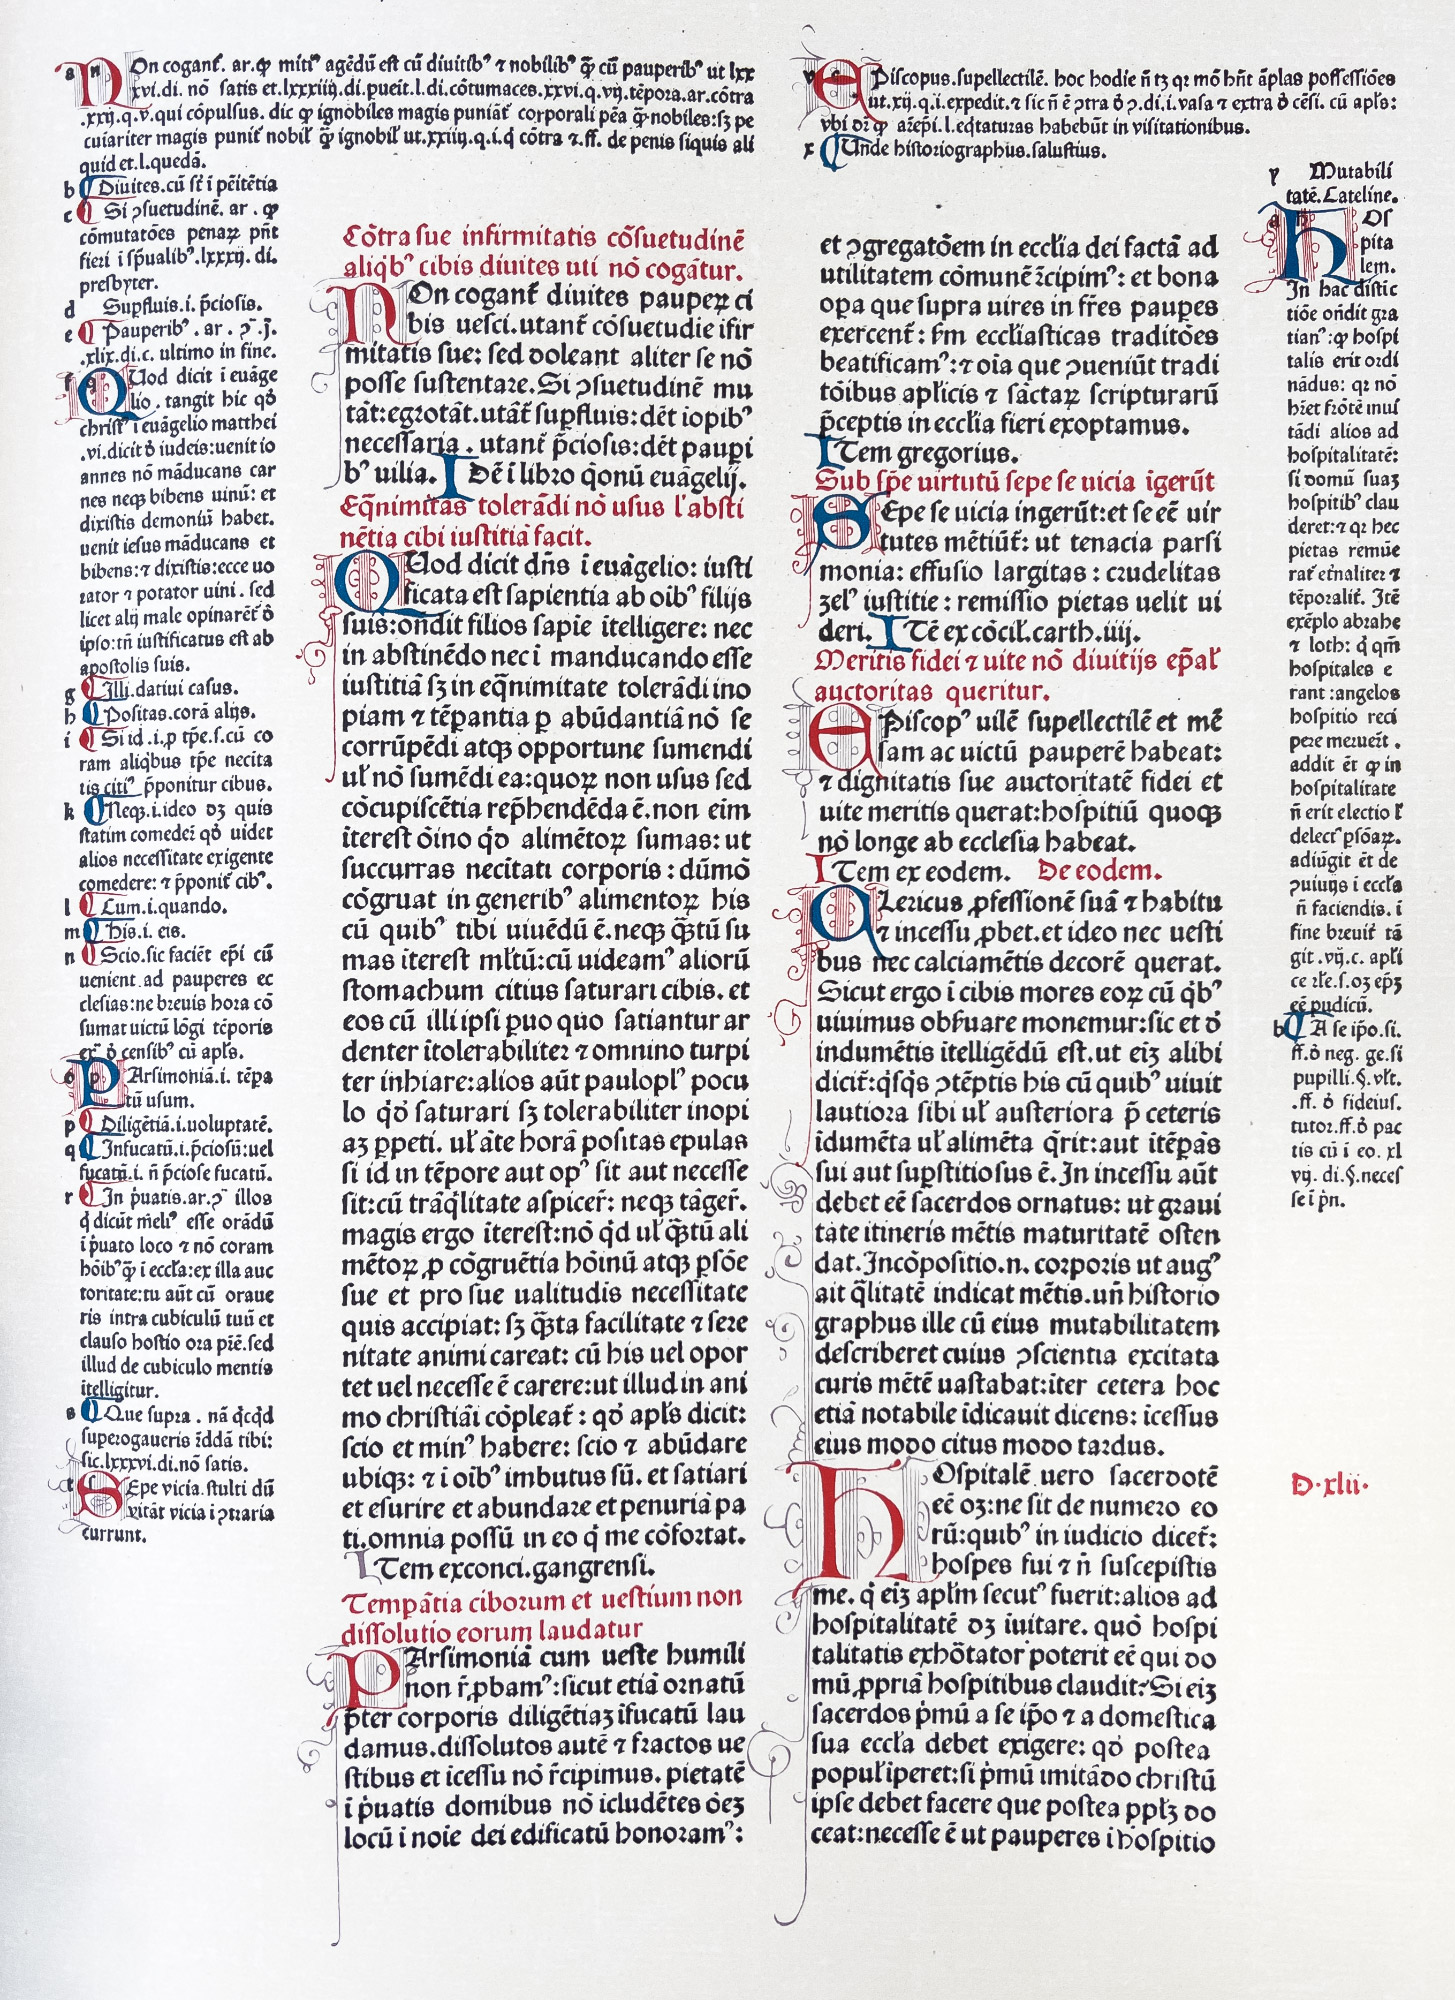 NOn cogant᷑. ar. ꝙ miti⁹ agēdū est cū diuitib⁹ ⁊ nobilib⁹ ꝙ̄ cū pauperib⁹ ut lxx
xvi. di. nō satis et. lxxxiiij. di. pueit. l. di. cōtumaces. xxvi. q. vij. tēpora. ar. cōtra
.xxij. q. v. qui cōpulsus. dic ꝙ ignobiles magis puniāt᷑ corporali pēa ꝙ̄ nobiles: sꝫ pe
cuiariter magis punit᷑ nobił ꝙ̄ ignobił ut. xxiiij. q. i. q̇ cōtra ⁊. ff. de penis siquis ali
quid et. l. quedā.
b Diuites. cū sēt i pēitētia
c Si ɔsuetudinē. ar. ꝙ
cōmutatōes penaꝝ pn̄t
fieri i sp̄ualib⁹. lxxxij. di.
presbyter.
d Supfluis. i. p̄ciosis.
e Pauperib⁹. ar. ɔ̄. j̄.
.xlix. di. c. ultimo in fine.
f QUod dicit i euāge
lio. tangit hic qđ
christ⁹ i euāgelio matthei
.vi. dicit đ iudeis: uenit io
annes nō māducans car
nes neqꝫ bibens uinū: et
dixistis demoniū habet.
uenit iesus māducans et
bibens: ⁊ dixistis: ecce uo
rator ⁊ potator uini. sed
licet alij male opinarēt᷑ đ
ipso: tn̄ iustificatus est ab
apostolis suis.
g Illi. datiui casus.
h Positas. corā alijs.
i Si id. i. ꝑ tp̄e. s. cū co
ram aliqbus tp̄e necita
tis citi⁹ p̄ponitur cibus.
k Neqꝫ. i. ideo oꝫ quis
statim comedei qđ uidet
alios necessitate exigente
comedere: ⁊ p̄ponit᷑ cib⁹.
l Cum. i. quando.
m His. i. eis.
n Scio. sic faciēt ep̄i cū
uenient ad pauperes ec
clesias: ne breuis hora cō
sumat uictū lōgi tēporis
ex̄ đ censib⁹ cū apłs.
o PArsimoniā. i. tēpa
tū usum.
p Diligētiā. i. uoluptatē.
q Infucatū. i. p̄ciosū: uel
fucatū. i. n̄ p̄ciose fucatū.
r In p̄uatis. ar. ɔ̄ illos
q̇ dicūt meli⁹ esse orādū
i p̄uato loco ⁊ nō coram
hōib⁹ ꝙ̄ i eccła: ex illa auc
toritate: tu aūt cū oraue
ris intra cubiculū tuū et
clauso hostio ora pr̄ē. sed
illud de cubiculo mentis
itelligitur.
s Que supra. nā q̇cq̇d
superogaueris r̄ddā tibi:
sic. lxxxvi. di. nō satis.
t SEpe vicia. stulti dū
vitāt vicia i ɔtraria
currunt.
Cōtra sue infirmitatis cōsuetudinē
aliqb⁹ cibis diuites uti nō cogātur.
NOn cogant᷑ diuites pauperꝝ ci
bis uesci. utant᷑ cōsuetudie ifir
mitatis sue: sed doleant aliter se nō
posse sustentare. Si ɔsuetudinē mu
tāt: egrotāt. utāt᷑ supfluis: dēt iopib⁹
necessaria. utant᷑ p̄ciosis: dēt paupi
b⁹ uilia. IDē i libro q̄onū euāgelij.
Eq̄nimitas tolerādi nō usus l᷑ absti
nētia cibi iustitiā facit.
QUod dicit dn̄s i euāgelio: iusti
ficata est sapientia ab oib⁹ filijs
suis: ondit filios sapie itelligere: nec
in abstinēdo nec i manducando esse
iustitiā sꝫ in eq̄nimitate tolerādi ino
piam ⁊ tēpantia ꝑ abūdantiā nō se
corrūpēdi atqꝫ opportune sumendi
uł nō sumēdi ea: quoꝝ non usus sed
cōcupiscētia rep̄hendēda ē. non eim
iterest ōino qđ alimētoꝝ sumas: ut
succurras necitati corporis: dūmō
cōgruat in generib⁹ alimentoꝝ his
cū quib⁹ tibi uiuēdū ē. neqꝫ ꝙ̄tū su
mas iterest młtū: cū uideam⁹ aliorū
stomachum citius saturari cibis. et
eos cū illi ipsi puo quo satiantur ar
denter itolerabiliter ⁊ omnino turpi
ter inhiare: alios aūt paulopl⁹ pocu
lo qđ saturari sꝫ tolerabiliter inopi
aꝫ ꝑpeti. uł āte horā positas epulas
si id in tēpore aut op⁹ sit aut necesse
sit: cū trāq̇litate aspicer̄: neqꝫ tāger̄.
magis ergo iterest: nō q̇d uł ꝙ̄tū ali
mētoꝝ ꝓ cōgruētia hōinū atqꝫ ꝑsōe
sue et pro sue ualitudis necessitate
quis accipiat: sꝫ ꝙ̄ta facilitate ⁊ sere
nitate animi careat: cū his uel opor
tet uel necesse ē carere: ut illud in ani
mo christiāi cōpleat᷑: qđ apłs dicit:
scio et min⁹ habere: scio ⁊ abūdare
ubiqꝫ: ⁊ i oib⁹ imbutus sū. et satiari
et esurire et abundare et penuriā pa
ti. omnia possū in eo q̇ me cōfortat.
ITem ex conci. gangrensi.
Tempātia ciborum et uestium non
dissolutio eorum laudatur
PArsimoniā cum ueste humili
non r̄ꝓbam⁹: sicut etiā ornatū
p̄ter corporis diligētiaꝫ ifucatū lau
damus. dissolutos autē ⁊ fractos ue
stibus et icessu nō r̄cipimus. pietatē
i p̄uatis domibus nō icludētes ōeꝫ
locū i noie dei edificatū honoram⁹:
v EPiscopus. supellectilē. hoc hodie n̄ tꝫ qꝛ mō hn̄t āplas possessiōes
ut. xij. q. i. expedit. ⁊ sic n̄ ē ɔtra đ ɔ. di. i. vasa ⁊ extra đ cēsi. cū apłs:
vbi dr̄ ꝙ arēpi. l. eq̄taturas habebūt in visitationibus.
x Unde historiographus. salustius.
et ɔgregatōem in ecclīa dei factā ad
utilitatem cōmunē r̄cipim⁹: et bona
opa que supra uires in fr̄es paupes
exercent᷑: ẜm ecclīasticas traditōes
beatificam⁹: ⁊ oīa que ɔueniūt tradi
tōibus aplicis ⁊ sāctaꝝ scripturarū
p̄ceptis in ecclīa fieri exoptamus.
ITem gregorius.
Sub sp̄e uirtutū sepe se uicia igerūt
SEpe se uicia ingerūt: et se eē uir
tutes mētiūt᷑: ut tenacia parsi
monia: effusio largitas: crudelitas
zel⁹ iustitie: remissio pietas uelit ui
deri. ITē ex cōcił. carth. iiij.
Meritis fidei ⁊ uite nō diuitijs ep̄ał
auctoritas queritur.
EPiscop⁹ uilē supellectilē et mē
sam ac uictū pauperē habeat:
⁊ dignitatis sue auctoritatē fidei et
uite meritis querat: hospitiū quoqꝫ
nō longe ab ecclesia habeat.
ITem ex eodem. De eodem.
CLericus ꝓfessionē suā ⁊ habitu
⁊ incessu ꝓbet. et ideo nec uesti
bus nec calciamētis decorē querat.
Sicut ergo i cibis mores eoꝝ cū q̇b⁹
uiuimus obẜuare monemur: sic et đ
indumētis itelligēdū est. ut eiꝫ alibi
dicit᷑: q̇sq̇s ɔtēptis his cū quib⁹ uiuit
lautiora sibi uł austeriora p̄ ceteris
idumēta uł alimēta q̄rit: aut itēpās
sui aut supstitiosus ē. In incessu aūt
debet eē sacerdos ornatus: ut graui
tate itineris mētis maturitatē osten
dat. Incōpositio. n. corporis ut aug⁹
ait q̄litatē indicat mētis. un̄ historio
graphus ille cū eius mutabilitatem
describeret cuius ɔscientia excitata
curis mētē uastabat: iter cetera hoc
etiā notabile idicauit dicens: icessus
eius modo citus modo tardus.
HOspitalē uero sacerdotē
eē oꝫ: ne sit de numero eo
rū: quib⁹ in iudicio dicet᷑:
hospes fui ⁊ n̄ suscepistis
me. q̇ eiꝫ apłm secut⁹ fuerit: alios ad
hospitalitatē oꝫ iuitare. quō hospi
talitatis exhōtator poterit eē qui do
mū ꝓpriā hospitibus claudit: Si eiꝫ
sacerdos p̄mū a se ip̄o ⁊ a domestica
sua eccła debet exigere: qđ postea
popuł iperet: si p̄mū imitādo christū
ipse debet facere que postea ppłꝫ do
ceat: necesse ē ut pauperes i hospitio
y Mutabili
tatē. Cateline.
a HOs
pita
lem.
In hac distic
tiōe ondit gra
tian⁹: ꝙ hospi
talis erit ordi
nādus: qꝛ nō
hr̄et frōtē inui
tādi alios ad
hospitalitatē:
si domū suaꝫ
hospitib⁹ clau
deret: ⁊ qꝛ hec
pietas remūe
rat᷑ et̄naliter ⁊
tēporalit᷑. Itē
exēplo abrahe
⁊ loth: q̇ qm̄
hospitales e
rant: angelos
hospitio reci
pere meruert̄.
addit ēt ꝙ in
hospitalitate
n̄ erit electio ł
delect⁹ ꝑsōaꝝ.
adiūgit ēt de
ɔuiuijs i eccła
n̄ faciendis. i
fine breuit᷑ tā
git. vij. c. apłi
ce rłe. s. oꝫ ep̄ꝫ
eē pudicū.
b A se ip̄o. si.
ff. đ neg. ge. si
pupilli. §. vłt.
.ff. đ fideius.
tutor. ff. đ pac
tis cū i eo. xl
vij. di. §. neces
se i p̄n.
D. xlii.